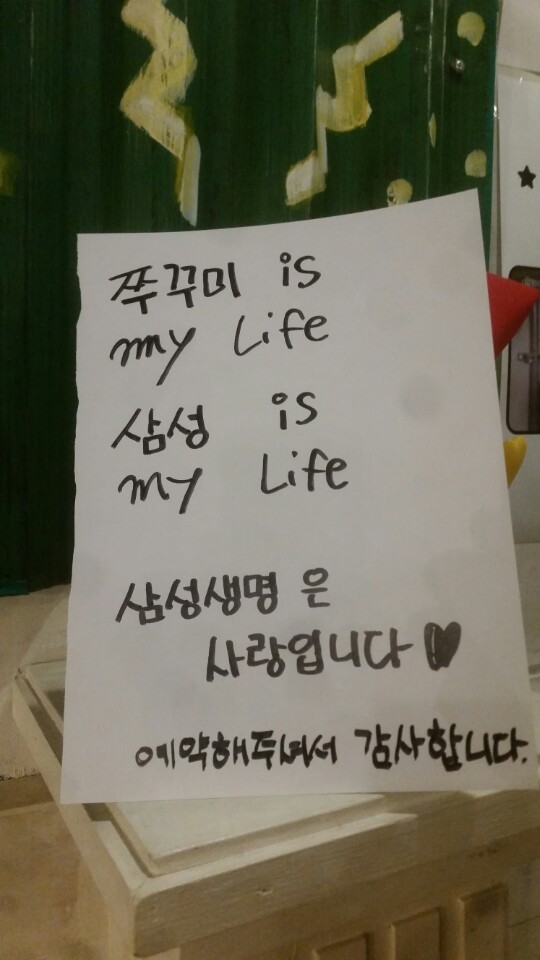 쭈꾸미 is
my Life
삼성 is
my Life
삼성생명은
사랑입니다
예약해주셔서 감사합니다.